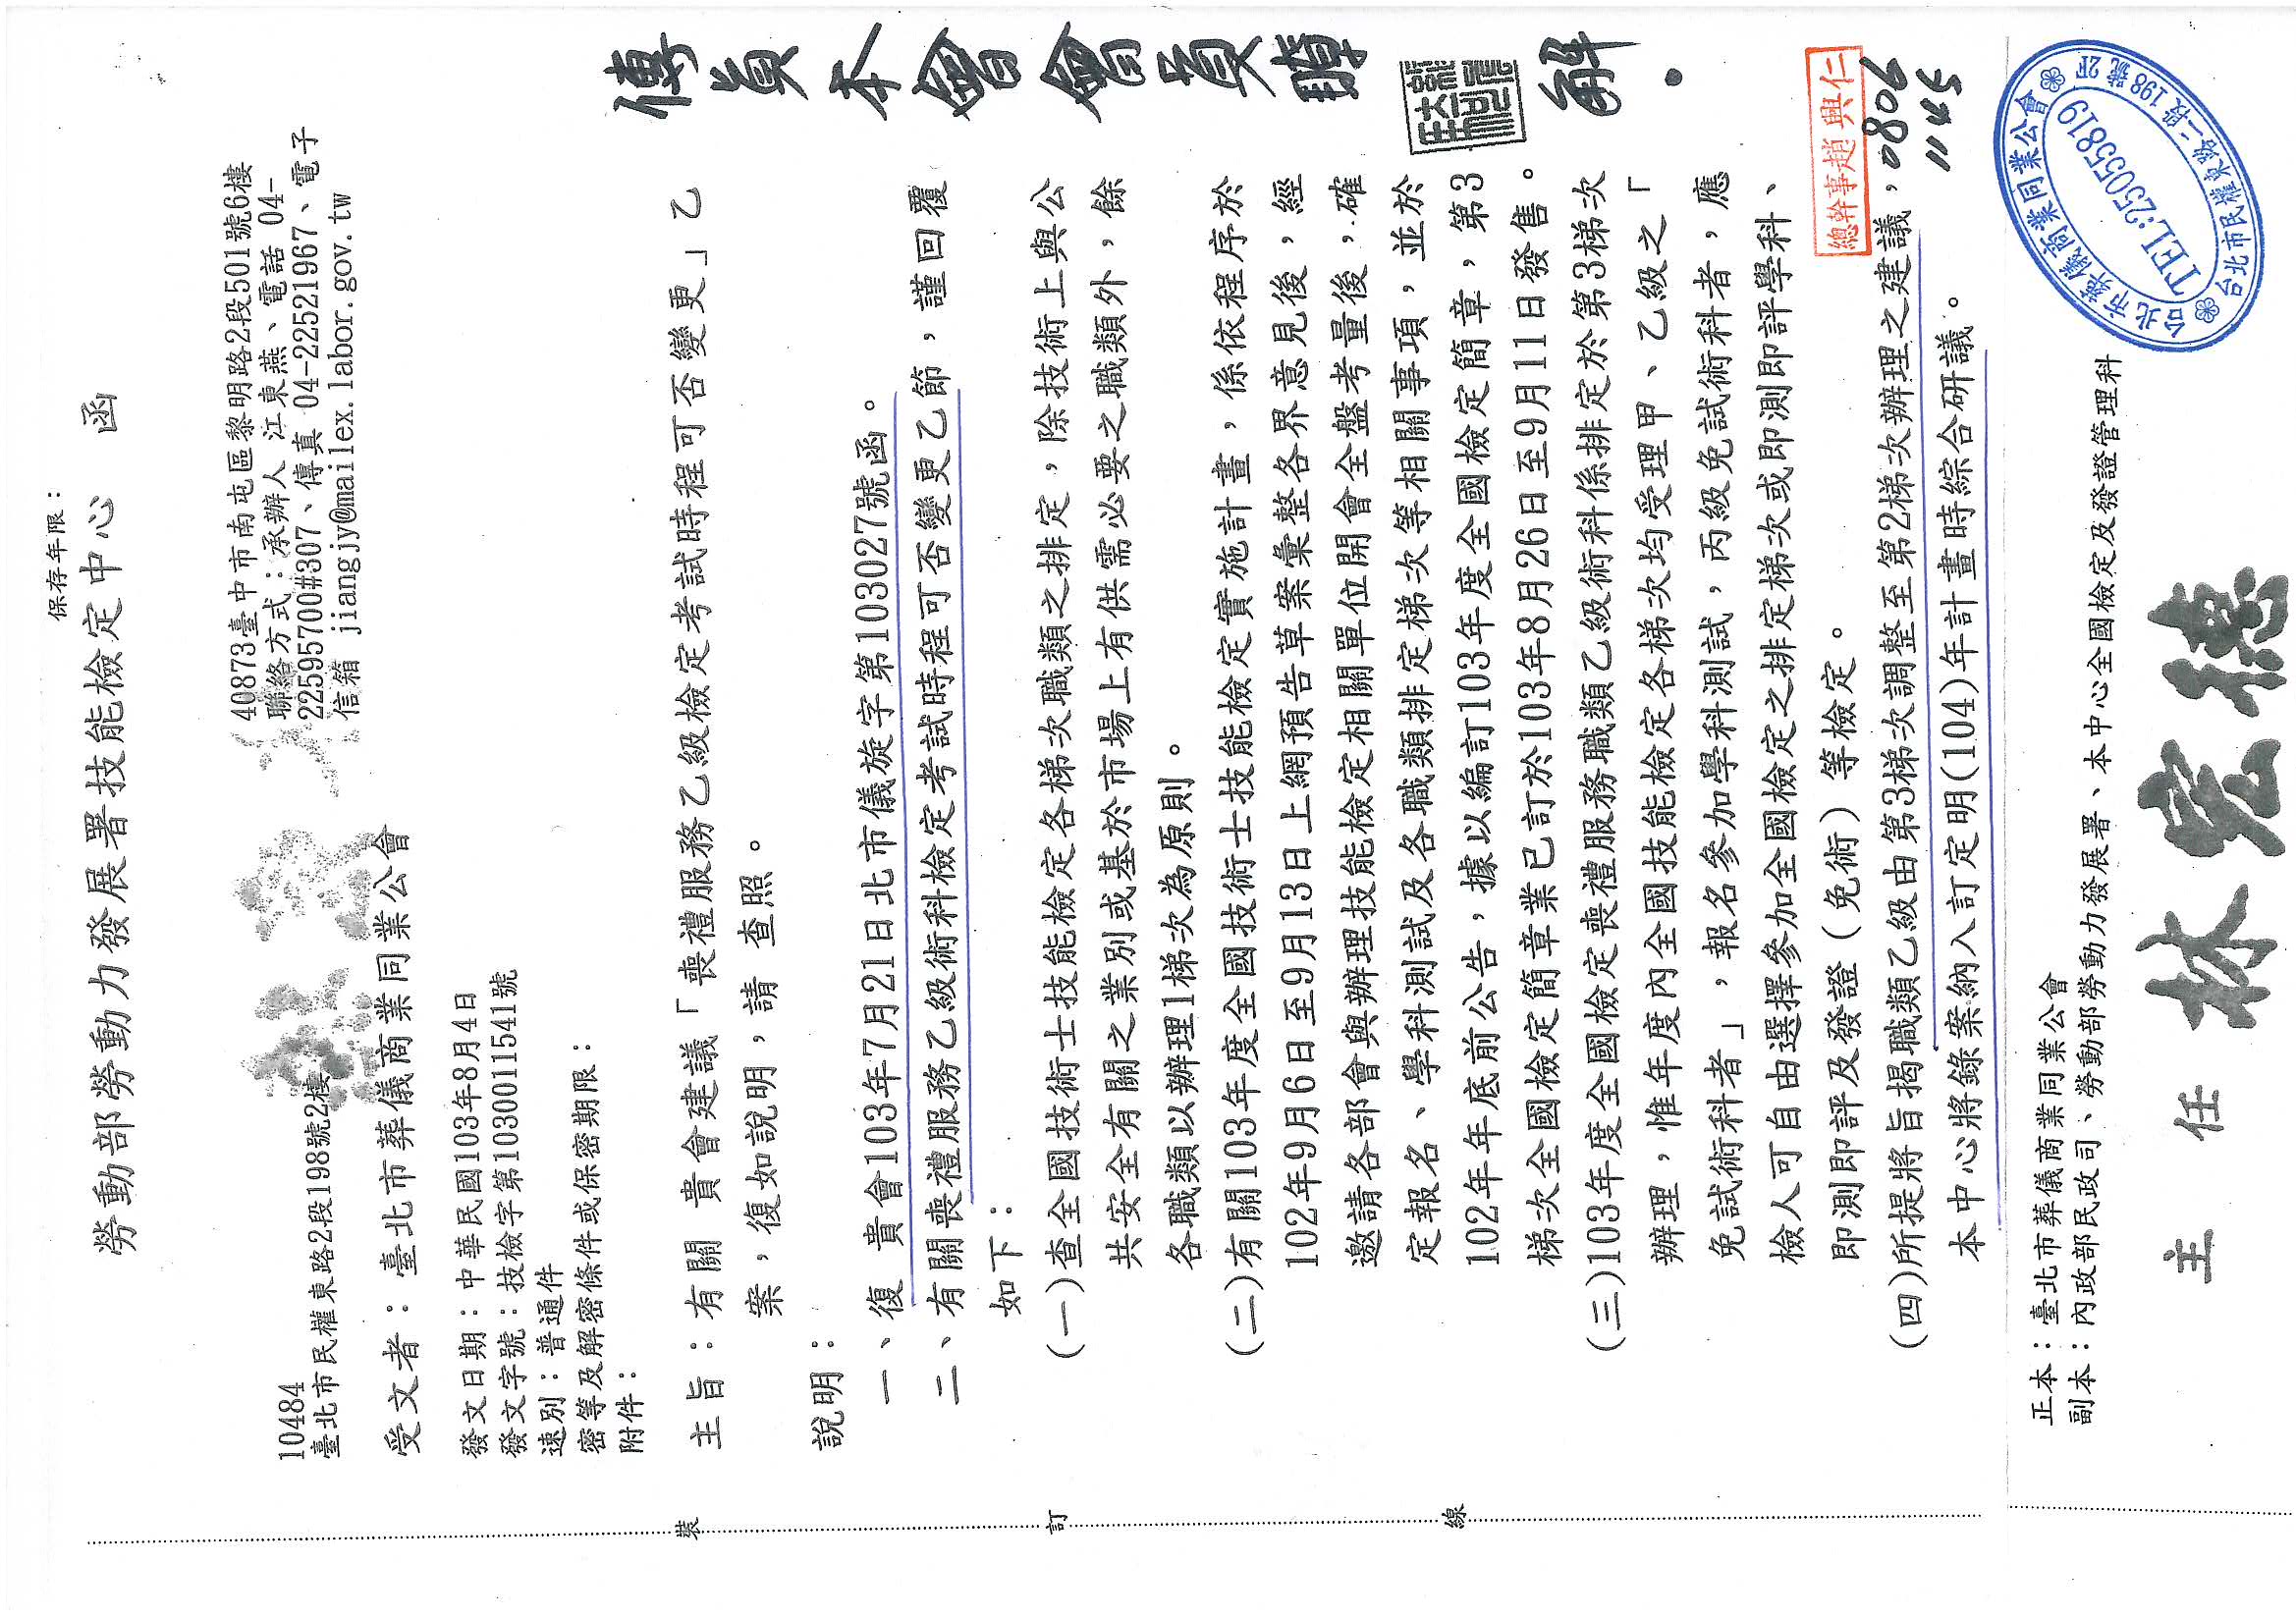 保存年限：
勞動部勞動力發展署技能檢定中心 函
40873臺中市南屯區黎明路2段501號6樓
聯絡方式：承辦人 江東燕、電話 04-
22595700#307、傳真 04-22521967、電子
信箱 jiangjy@mailex.labor.gov.tw
10484
臺北市民權東路2段198號2樓
受文者：臺北市葬儀商業同業公會
發文日期：中華民國103年8月4日
發文字號：技檢字第1030011541號
速別：普通件
密等及解密條件或保密期限：
附件：
主旨：有關 貴會建議「喪禮服務乙級檢定考試時程可否變更」乙
案，復如說明，請 查照。
說明：
一、復 貴會103年7月21日北市儀旋字第103027號函。
二、有關喪禮服務乙級術科檢定考試時程可否變更乙節，謹回覆
如下：
(一)查全國技術士技能檢定各梯次職類之排定，除技術上與公
共安全有關之業別或基於市場上有供需必要之職類外，餘
各職類以辦理1梯次為原則。
(二)有關103年度全國技術士技能檢定實施計畫，係依程序於
102年9月6日至9月13日上網預告草案彙整各界意見後，經
邀請各部會與辦理技能檢定相關單位開會全盤考量後，確
定報名、學科測試及各職類排定梯次等相關事項，並於
102年年底前公告，據以編訂103年度全國檢定簡章，第3
梯次全國檢定簡章業已訂於103年8月26日至9月11日發售。
(三)103年度全國檢定喪禮服務職類乙級術科係排定於第3梯次
辦理，惟年度內全國技能檢定各梯次均受理甲、乙級之「
免試術科者」，報名參加學科測試，丙級免試術科者，應
檢人可自由選擇參加全國檢定之排定梯次或即測即評學科、
即測即評及發證（免術）等檢定。
(四)所提將旨揭職類乙級由第3梯次調整至第2梯次辦理之建議，
本中心將錄案納入訂定明(104)年計畫時綜合研議。
正本：臺北市葬儀商業同業公會
副本：內政部民政司、勞動部勞動力發展署、本中心全國檢定及發證管理科
主 任 林宏德
裝
訂
線
傳員本會會員瞭解.
總幹事趙興仁
0806
1145
台北市葬儀商業同業公會
TEL:25055819
台北市民權東路二段198號2F